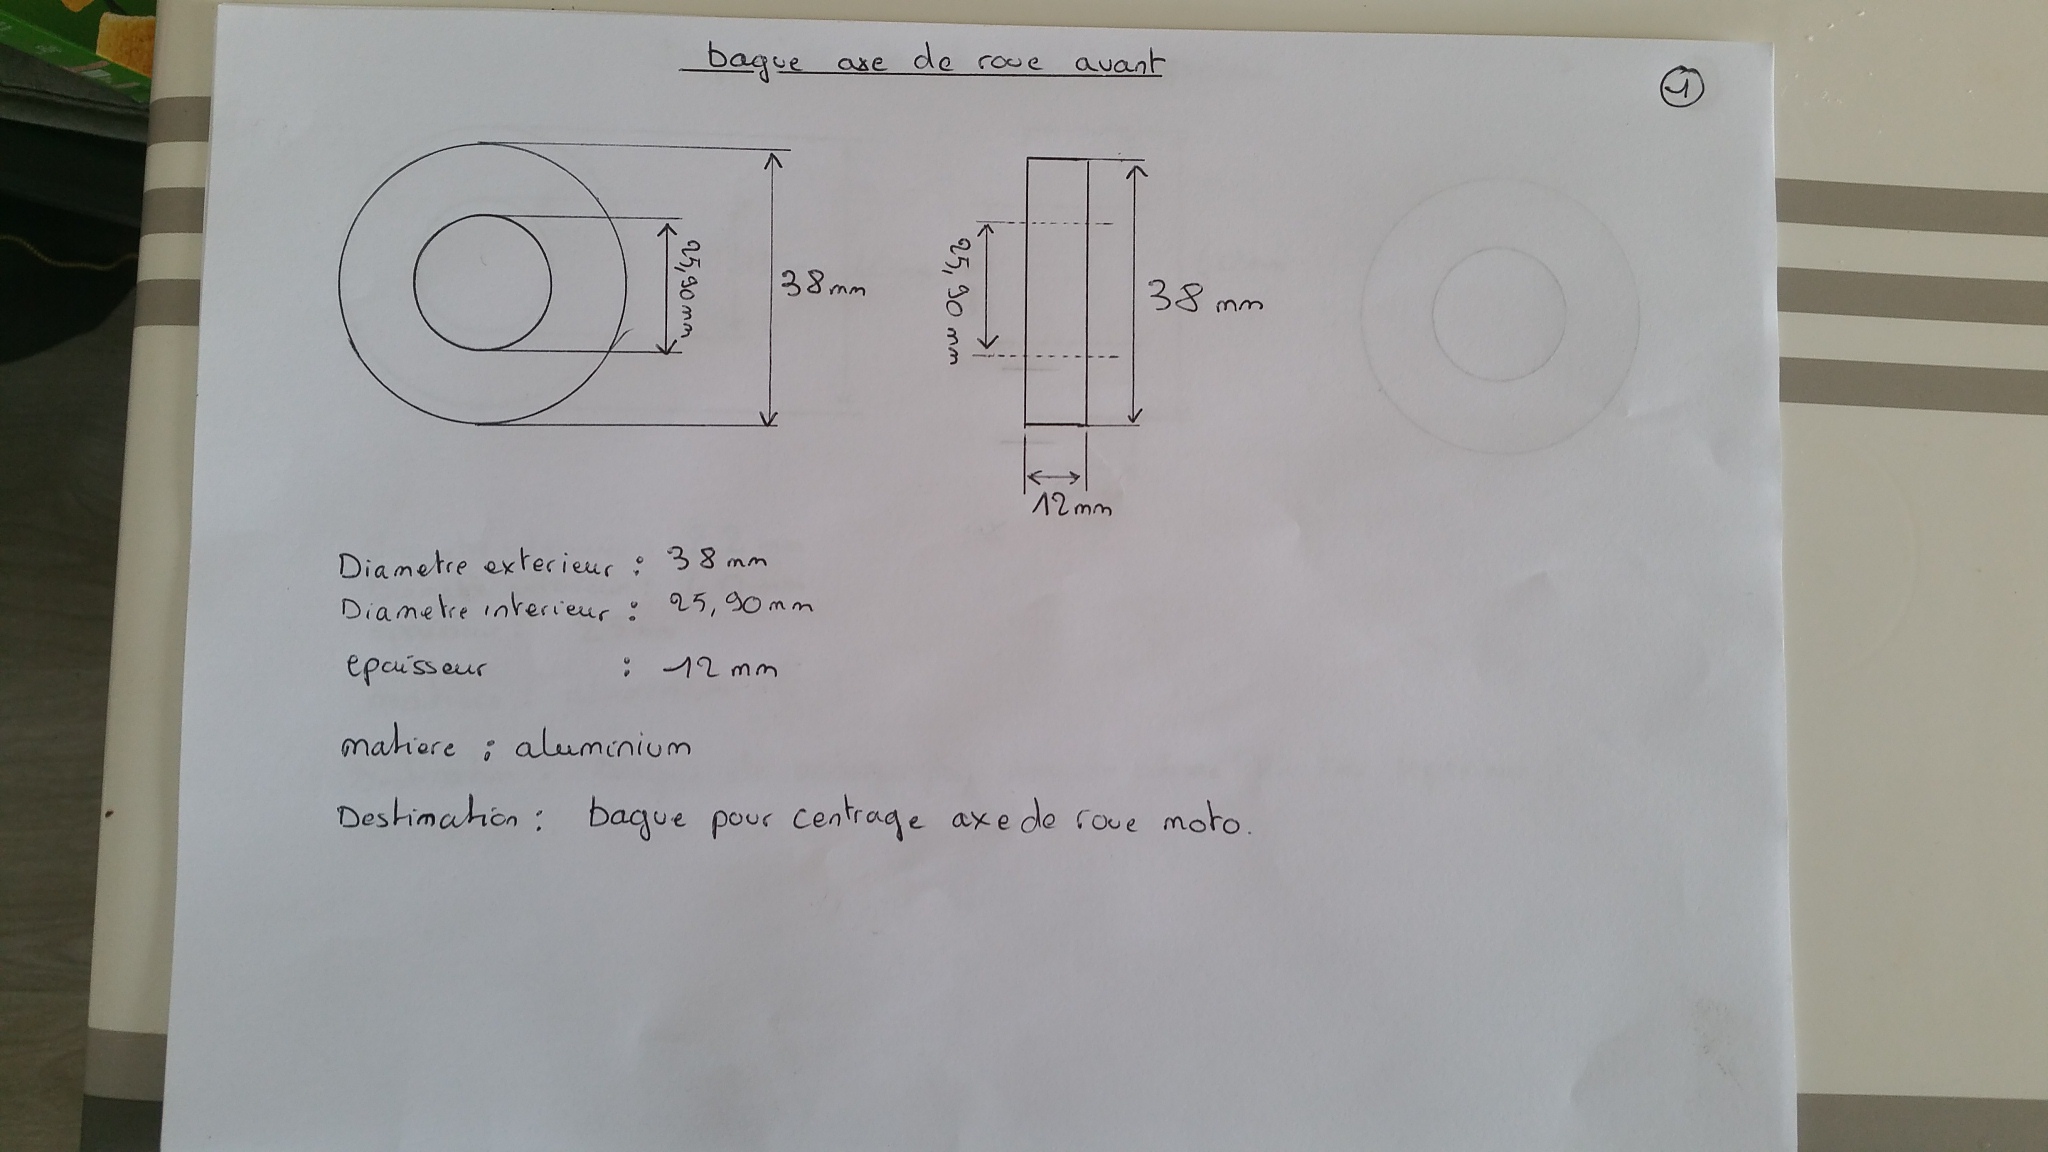 bague axe de roue avant
1
25,90 mm
38 mm
25,90 mm
38 mm
12 mm
Diametre exterieur : 38 mm
Diametre interieur : 25,90 mm
epaisseur : 12 mm
matiere : aluminium
Destination : bague pour centrage axe de roue moto.